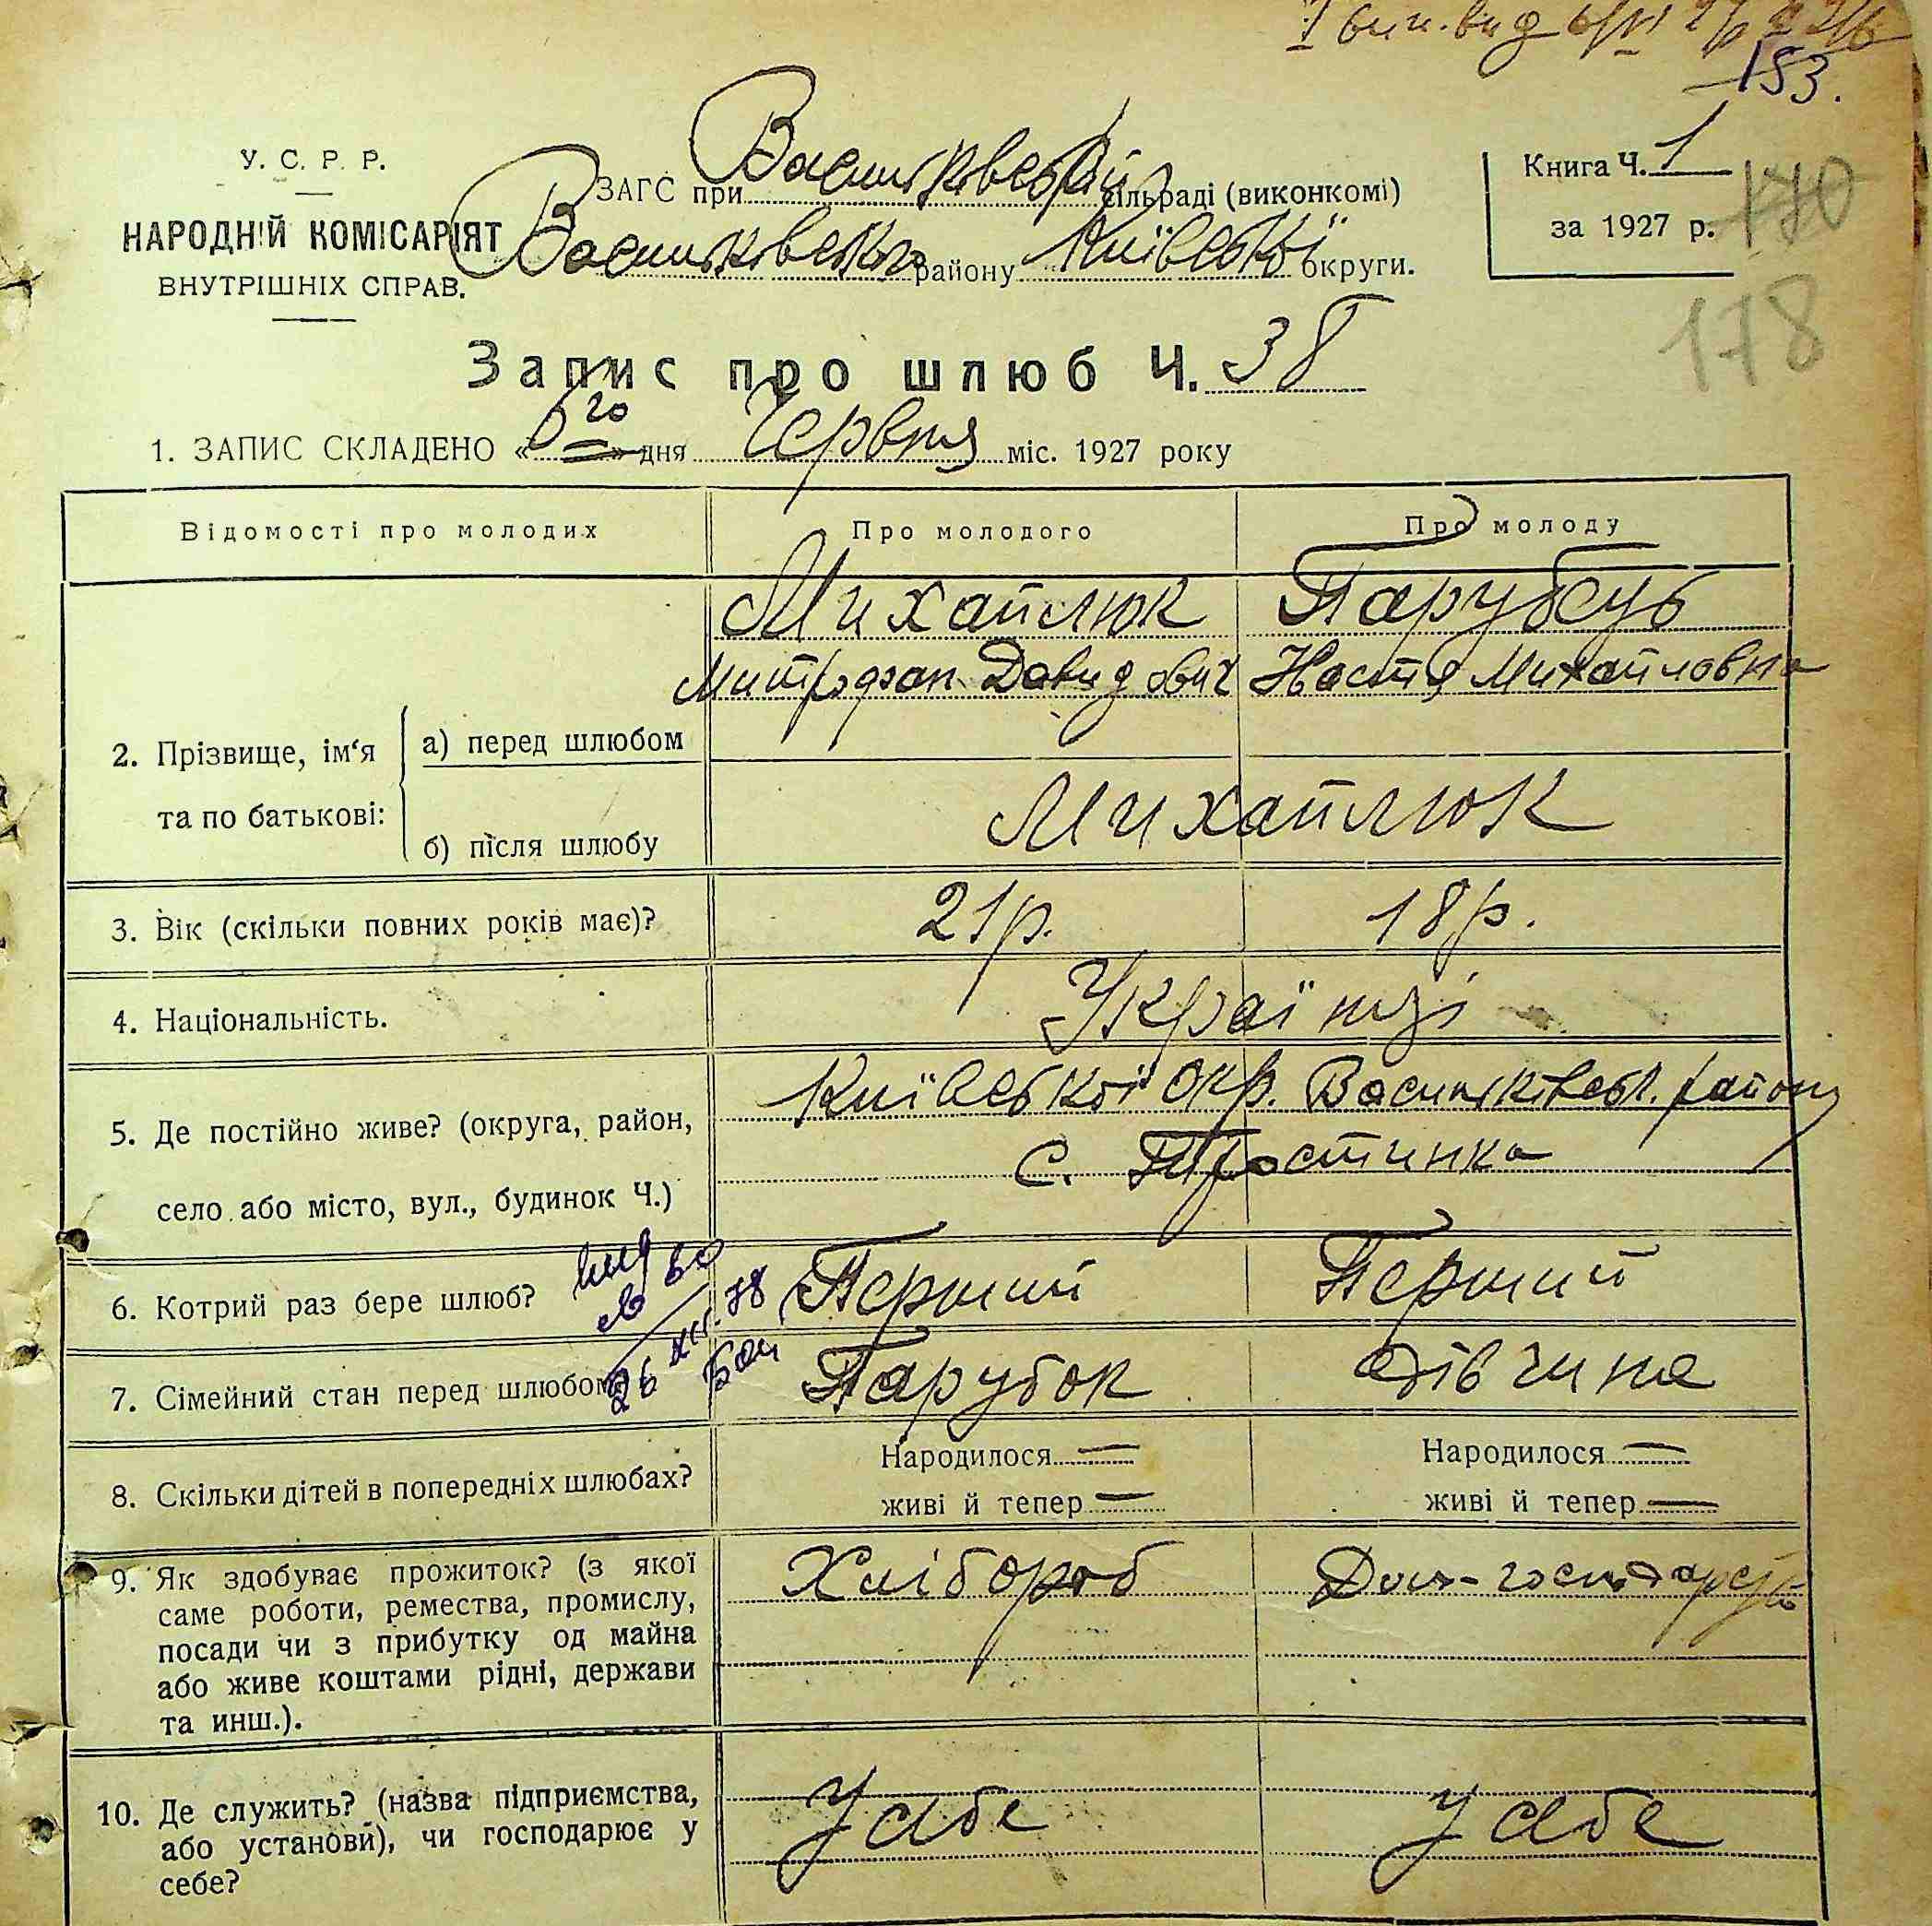 153.
У. С. Р. Р.
НАРОДНІЙ КОМІСАРІЯТ
ВНУТРІШНІХ СПРАВ.
ЗАГС при Васильківській сільраді (виконкомі)
Васильківського району Київської округи.
Книга Ч. 1
за 1927 р.
170
178
Запис про шлюб Ч. 38
1. ЗАПИС СКЛАДЕНО « го » дня Червня міс. 1927 року
Відомості про молодих Про молодого Про молоду
Михайлюк Парубець
Митрофан Давидович Настя Михайловна
2. Прізвище, ім‘я та по батькові:
а) перед шлюбом
б) після шлюбу Михайлюк
3. Вік (скільки повних років має)? 21 р. 18 р.
4. Національність. Українці
5. Де постійно живе? (округа, район, село або місто, вул., будинок Ч.) Київської окр. Васильківськ. району
с. Тростинка
6. Котрий раз бере шлюб? Перший Перший
7. Сімейний стан перед шлюбом Парубок дівчина
8. Скільки дітей в попередніх шлюбах? Народилося — Народилося —
живі й тепер — живі й тепер —
9. Як здобуває прожиток? (з якої Хлібороб Дом-господарсть
саме роботи, ремества, промислу,
посади чи з прибутку од майна
або живе коштами рідні, держави
та инш.).
10. Де служить? (назва підприємства, У себе У себе
або установи), чи господарює у
себе?